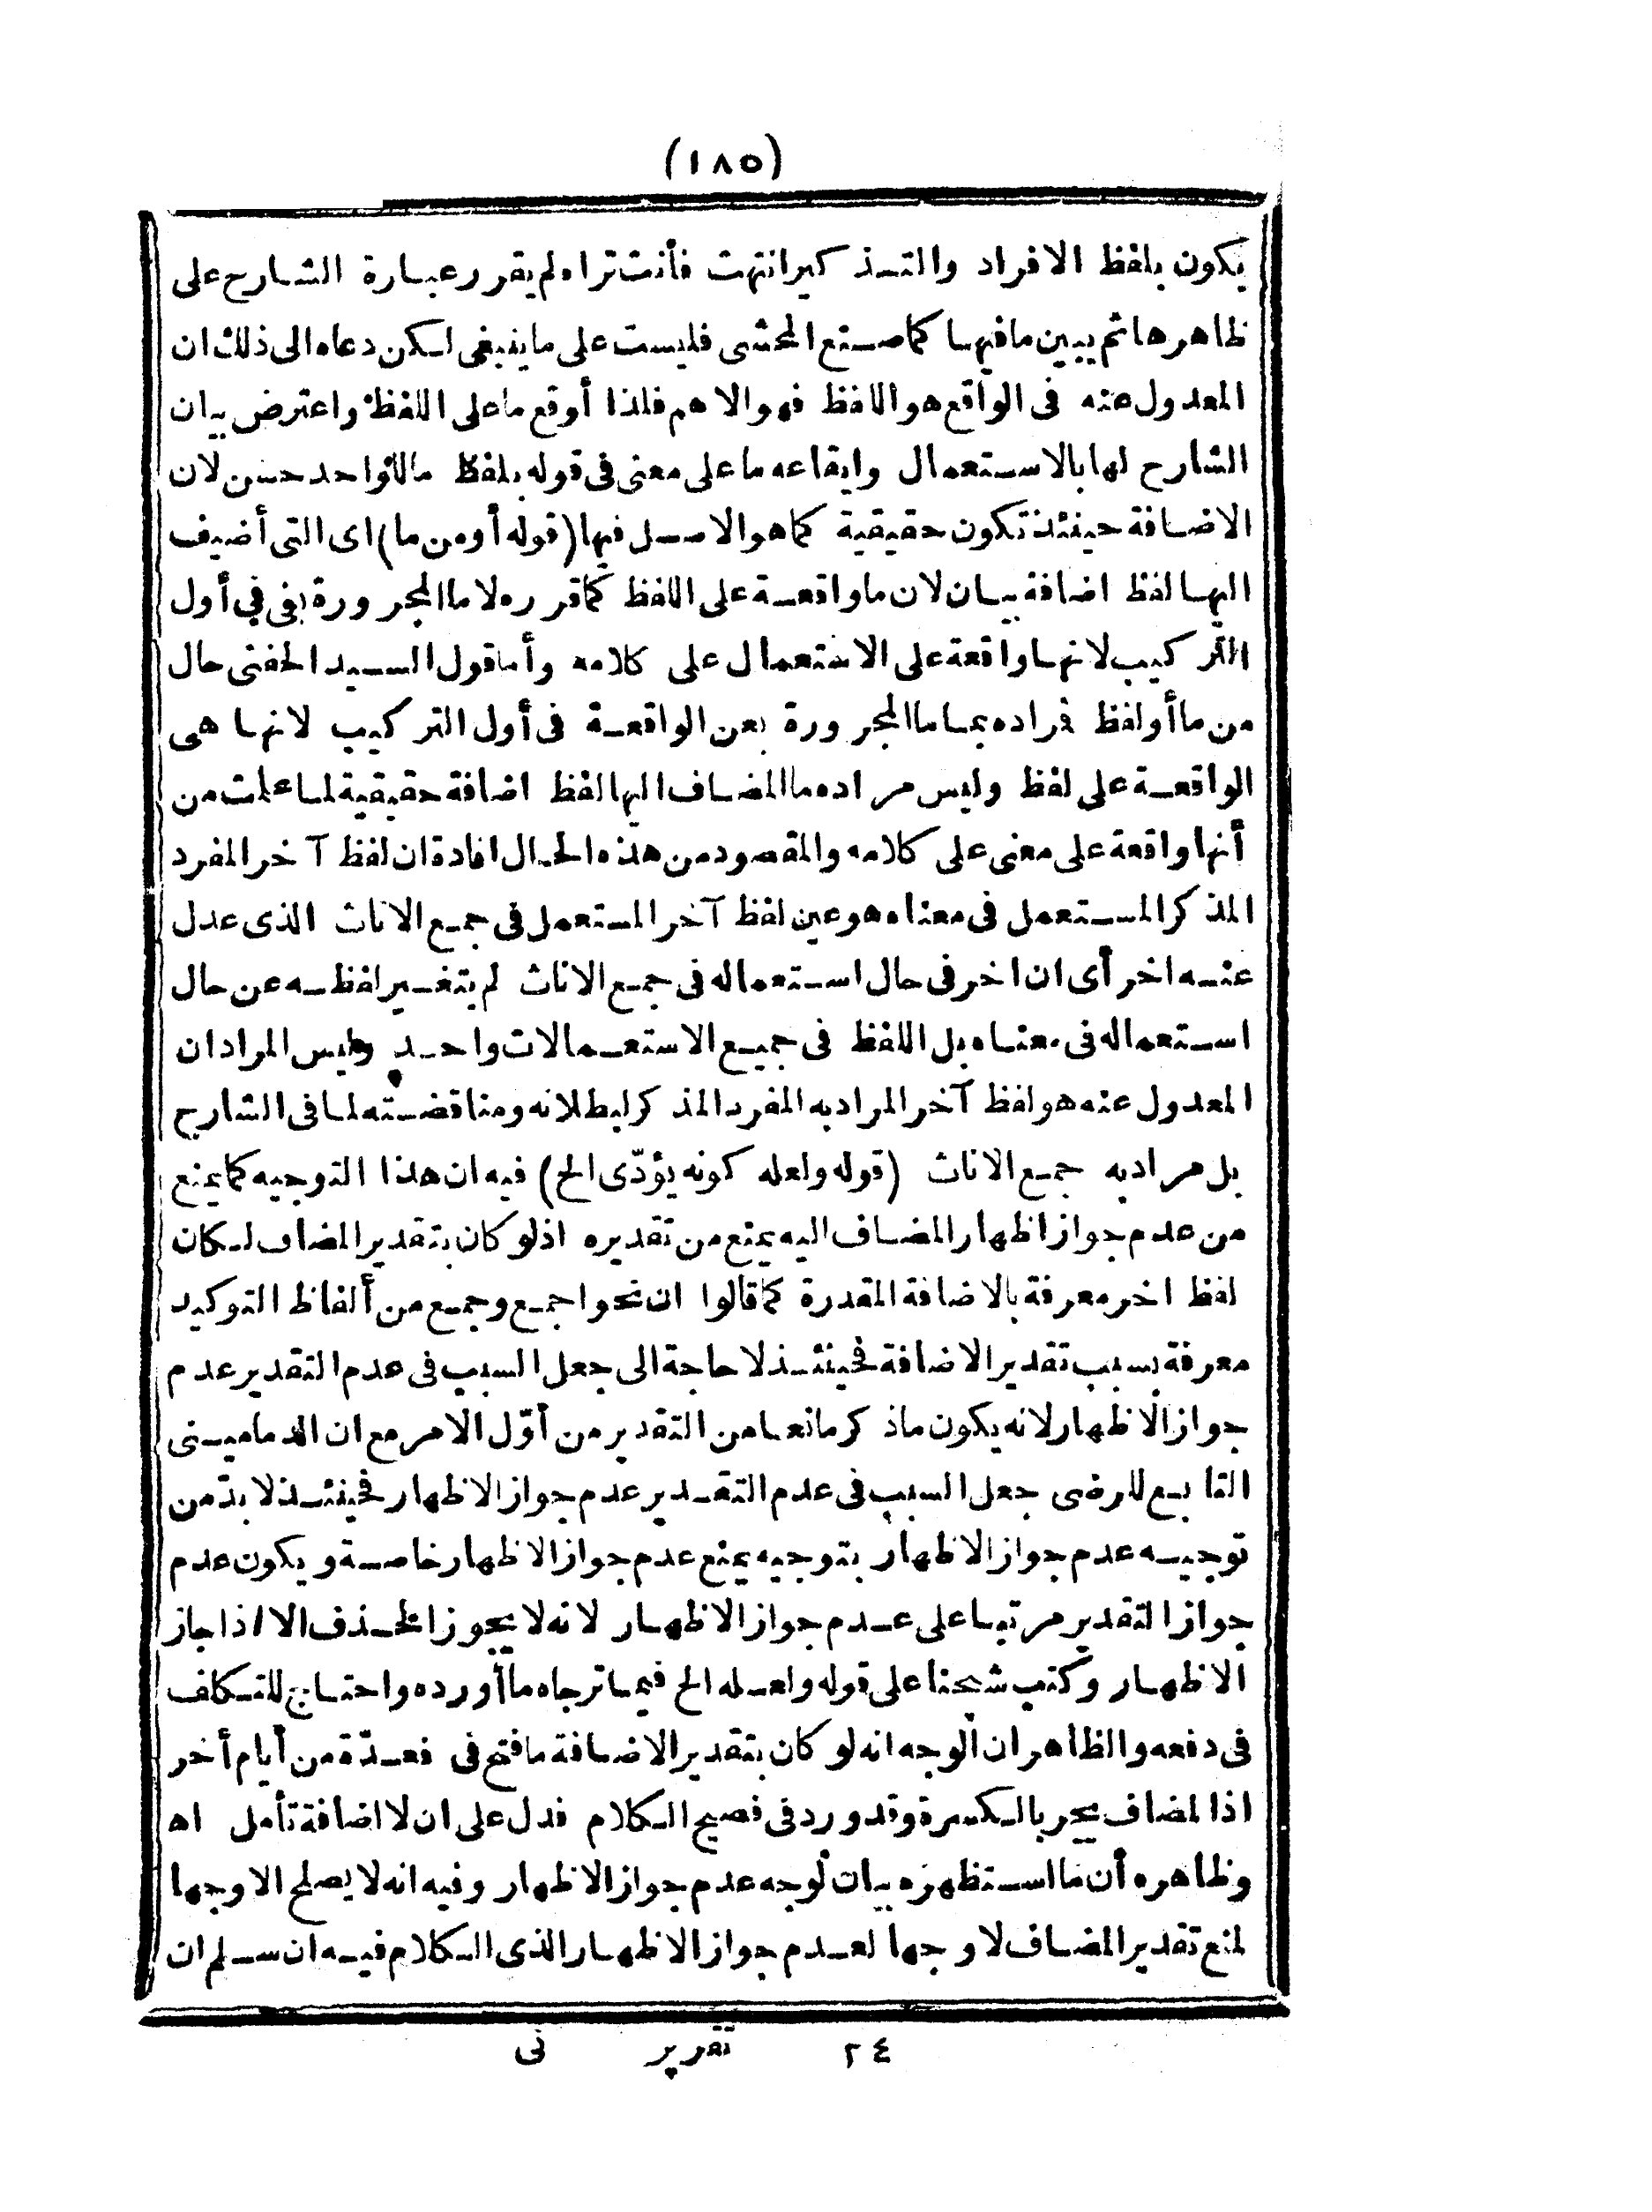 (١٨٥)
يكون بلفظ الافراد والتذكير انتهت فأنت تراه لم يقرر عبارة الشارح على
ظاهرها ثم يبين ما فيها كما صنع المحشى فليست على ما ينبغى لكن دعاه الى ذلك ان
المعدول عنه فى الواقع هو اللفظ فهو الاهم فلذا أوقع ما على اللفظ واعترض بيان
الشارح لها بالاستعمال وايقاعه ما على معنى فى قوله بلفظ ما للواحد حسن لان
الاضافة حينئذ تكون حقيقية كما هو الاصل فيها (قوله أو من ما) اى التى أضيف
اليها لفظ اضافة بيان لان ما واقعة على اللفظ كما قرره لا ما المجرورة بفى في أول
التركيب لانها واقعة على الاستعمال على كلامه وأما قول السيد الحفنى حال
من ما أو لفظ فمراده بما ما المجرورة بعن الواقعة فى أول التركيب لانها هى
الواقعة على لفظ وليس مراده ما المضاف اليها لفظ اضافة حقيقية لما علمت من
أنها واقعة على معنى على كلامه والمقصود من هذه الحال افادة ان لفظ آخر المفرد
المذكر المستعمل فى معناه هو عين لفظ آخر المستعمل فى جمع الاناث الذى عدل
عنه اخر أى ان اخر فى حال استعماله فى جمع الاناث لم يتغير لفظه عن حال
استعماله فى معناه بل اللفظ فى جميع الاستعمالات واحد وليس المراد ان
المعدول عنه هو لفظ آخر المراد به المفرد المذكر لبطلانه ومناقضته لما فى الشارح
بل مراد به جمع الاناث (قوله ولعله كونه يؤدّى الخ) فيه ان هذا التوجيه كما يمنع
من عدم جواز اظهار المضاف اليه يمنع من تقديره اذ لو كان بتقدير المضاف لكان
لفظ اخر معرفة بالاضافة المقدرة كما قالوا ان نحو اجمع وجمع من ألفاظ التوكيد
معرفة بسبب تقدير الاضافة فحينئذ لا حاجة الى جعل السبب فى عدم التقدير عدم
جواز الاظهار لانه يكون ما ذكر مانعا من التقدير من أوّل الامر مع ان الدمامينى
التابع للرضى جعل السبب فى عدم التقدير عدم جواز الاظهار فحينئذ لا بدّ من
توجيه عدم جواز الاظهار بتوجيه يمنع عدم جواز الاظهار خاصة ويكون عدم
جواز التقدير مرتبا على عدم جواز الاظهار لانه لا يجوز الحذف الا اذا جاز
الاظهار وكتب شيخنا على قوله ولعله الخ فيما ترجاه ما أورده واحتاج للتكلف
فى دفعه والظاهر ان الوجه انه لو كان بتقدير الاضافة ما فتح فى فعدّة من أيام أخر
اذ المضاف يجر بالكسرة وقد ورد فى فصيح الكلام فدل على ان لا اضافة تأمل اه
وظاهره أن ما استظهره بيان لوجه عدم جواز الاظهار وفيه انه لا يصلح الا وجها
لمنع تقدير المضاف لا وجها لعدم جواز الاظهار الذى الكلام فيه ان سلم ان
٢٤ تقرير نى